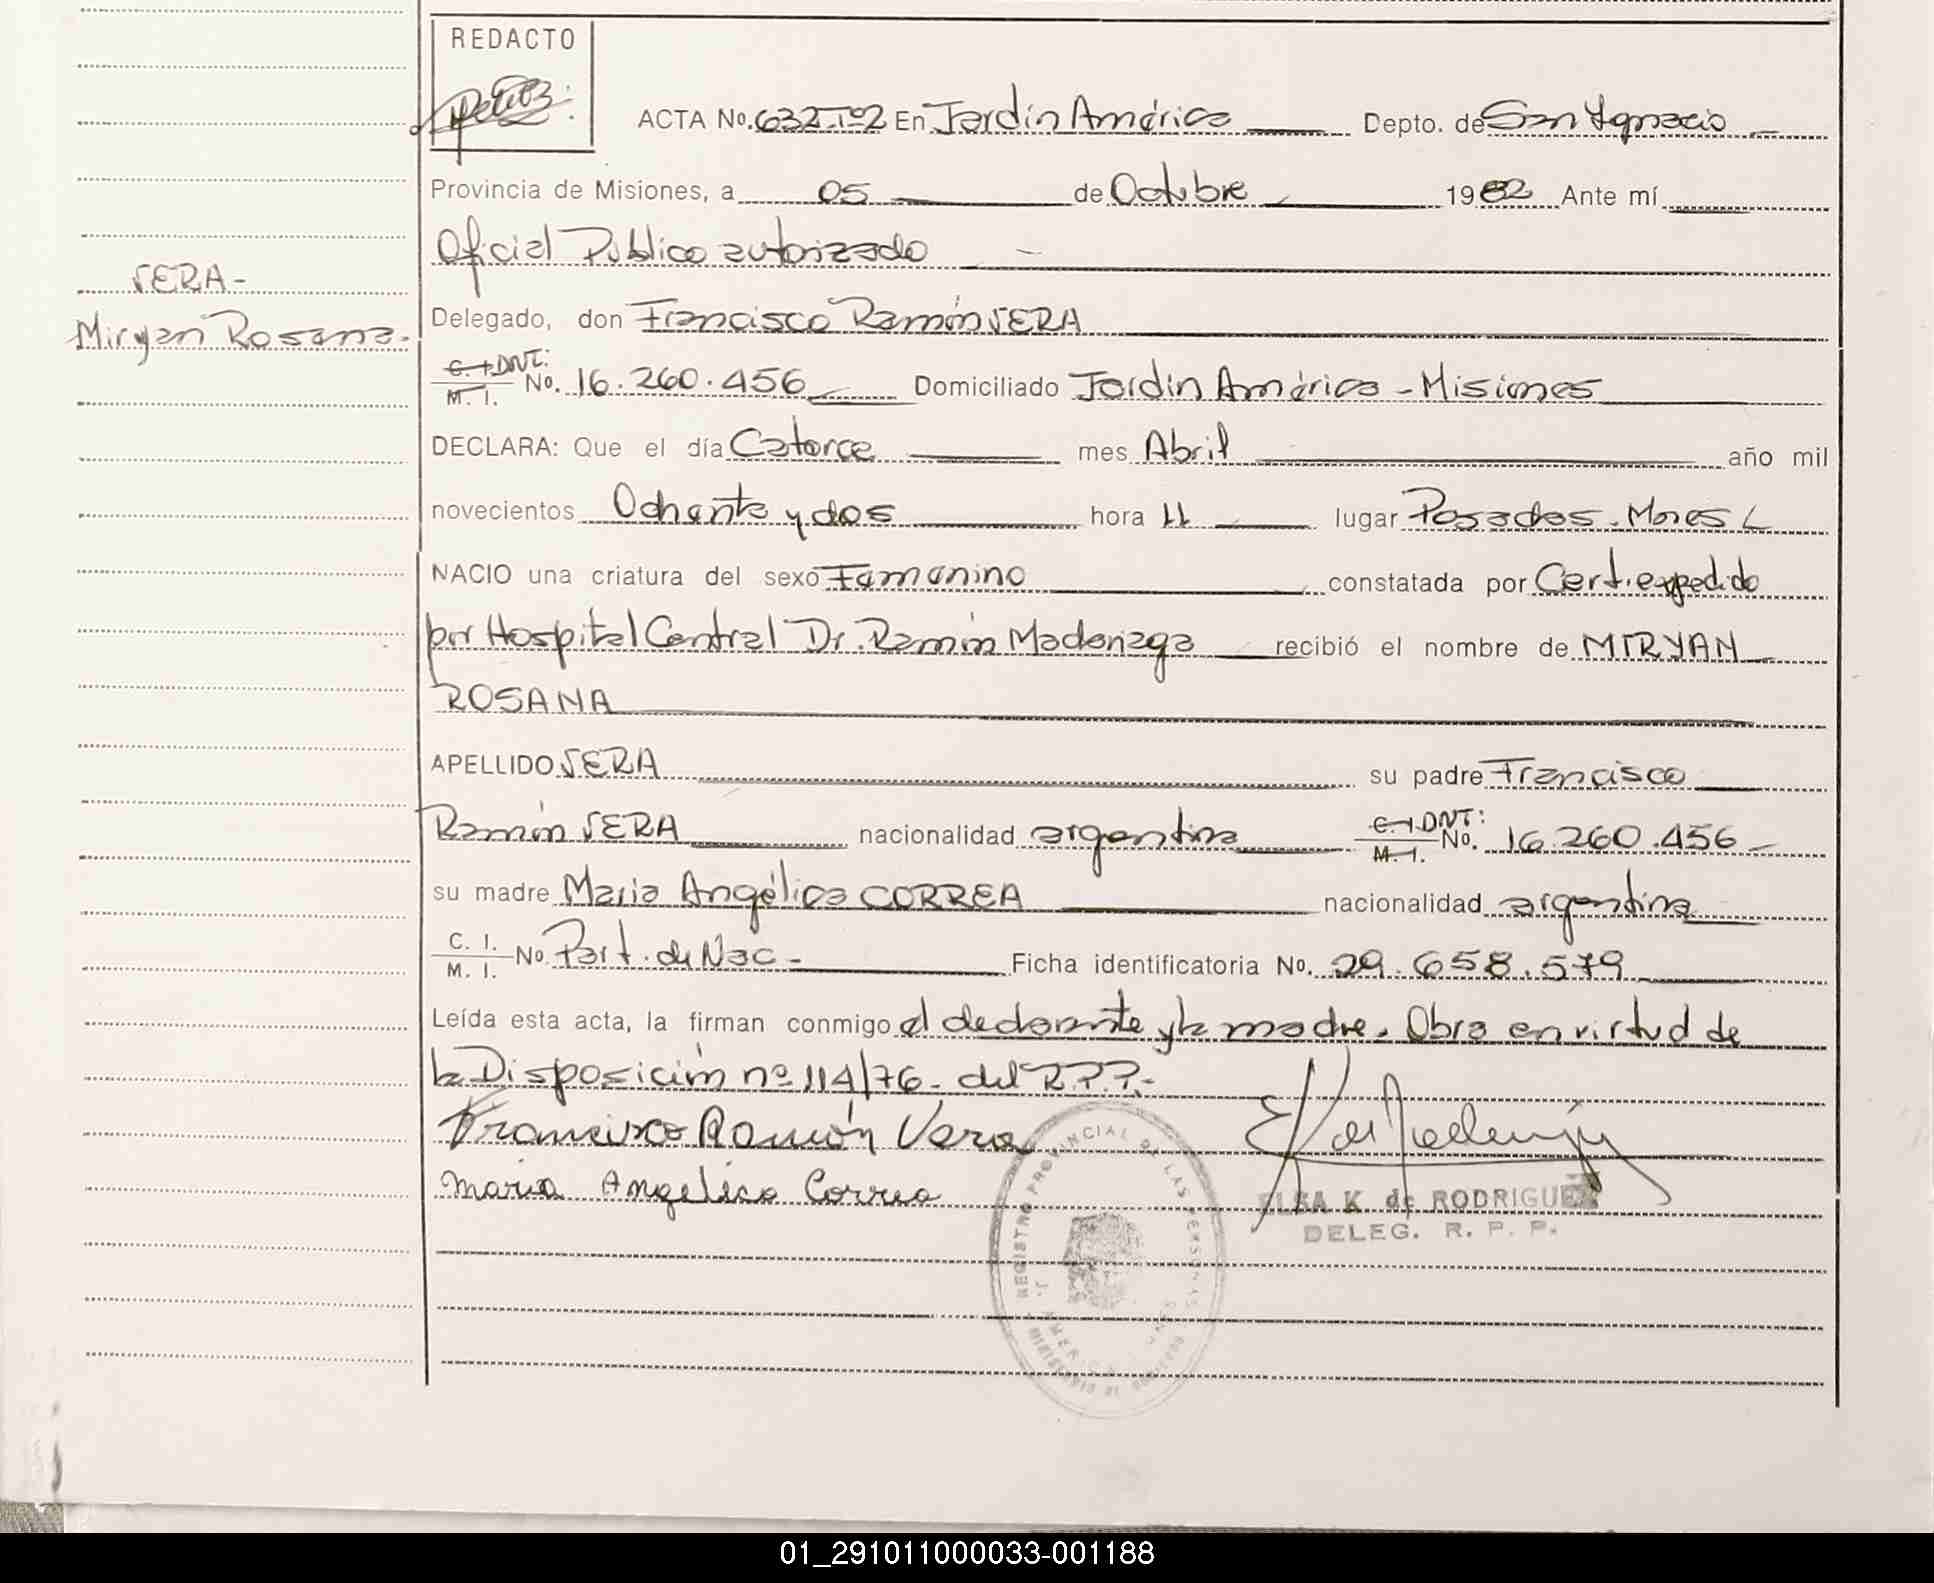 REDACTO
ACTA No. 632 Tº2 En Jardin América Depto. de San Ignacio
Provincia de Misiones, a 05 de Octubre 1982 Ante mí
Oficial Público autorizado
VERA-
Delegado, don Francisco Ramón VERA
Miryan Rosana.-
C. I. DNI: M. I. No. 16.260.456 Domiciliado Jardin América - Misiones
DECLARA: Que el día Catorce mes Abril año mil
novecientos Ochenta y dos hora 11 lugar Posadas. Mnes
NACIO una criatura del sexo Femenino constatada por Cert. expedido
por Hospital Central Dr. Ramón Madariaga recibió el nombre de MIRYAN
ROSANA
APELLIDO VERA su padre Francisco
Ramón VERA nacionalidad argentina C. I. DNI: M. I. No. 16.260.456
su madre Maria Angélica CORREA nacionalidad argentina
C. I. M. I. No. Part. de Nac - Ficha identificatoria No. 29.658.579
Leída esta acta, la firman conmigo el declarante y la madre. Obra en virtud de
la Disposición nº 114/76. del R.P.P.-
Francisco Ramón Vera
Maria Angelica Correa
ELSA K de RODRIGUEZ
DELEG. R. P. P.
REGISTRO PROVINCIAL DE LAS PERSONAS
MINISTERIO DE GOBIERNO
01_291011000033-001188